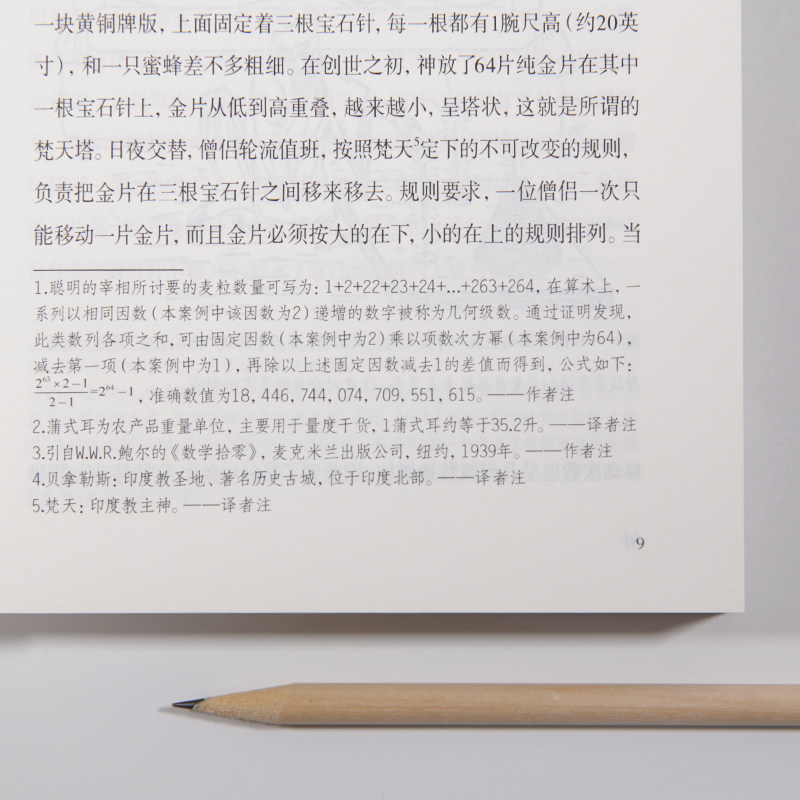 一块黄铜牌版，上面固定着三根宝石针，每一根都有1腕尺高（约20英
寸），和一只蜜蜂差不多粗细。在创世之初，神放了64片纯金片在其中
一根宝石针上，金片从低到高重叠，越来越小，呈塔状，这就是所谓的
梵天塔。日夜交替，僧侣轮流值班，按照梵天5定下的不可改变的规则，
负责把金片在三根宝石针之间移来移去。规则要求，一位僧侣一次只
能移动一片金片，而且金片必须按大的在下，小的在上的规则排列。当
1.聪明的宰相所讨要的麦粒数量可写为：1+2+22+23+24+…+263+264，在算术上，一
系列以相同因数（本案例中该因数为2）递增的数字被称为几何级数。通过证明发现，
此类数列各项之和，可由固定因数（本案例中为2）乘以项数次方幂（本案例中为64），
减去第一项（本案例中为1），再除以上述固定因数减去1的差值而得到，公式如下：
(2^63×2-1)/(2-1)=2^64-1，准确数值为18，446，744，074，709，551，615。——作者注
2.蒲式耳为农产品重量单位，主要用于量度干货，1蒲式耳约等于35.2升。——译者注
3.引自W.W.R.鲍尔的《数学拾零》，麦克米兰出版公司，纽约，1939年。——作者注
4.贝拿勒斯：印度教圣地、著名历史古城，位于印度北部。——译者注
5.梵天：印度教主神。——译者注
9